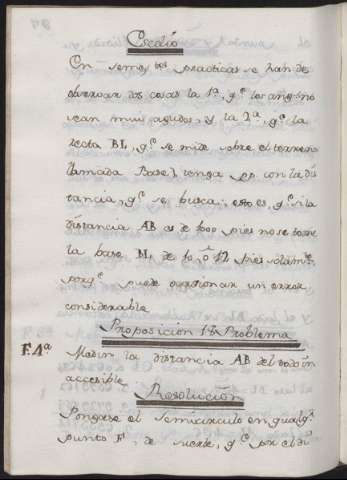 Escolio
En semejtes practicas se han de
observar dos cosas la 1ª, qe los angs no
sean mui agudos, y la 2ª, qe la
recta BL, qe se mide sobre el terreno
(llamada Base) tenga pp. con la dis
tancia, qe se busca; esto es, qe si la
distancia AB es de 1000 pies no se tome
la base de 10, ò 12 pies solamte
porqe puede ocasionar un error
considerable
Proposicion 17ª Problema
F. 4ª Medir la distancia AB del todo in
accesible
Resolucion
Pongase el semicirculo en qualqa
punto F, de suerte, qe por el di